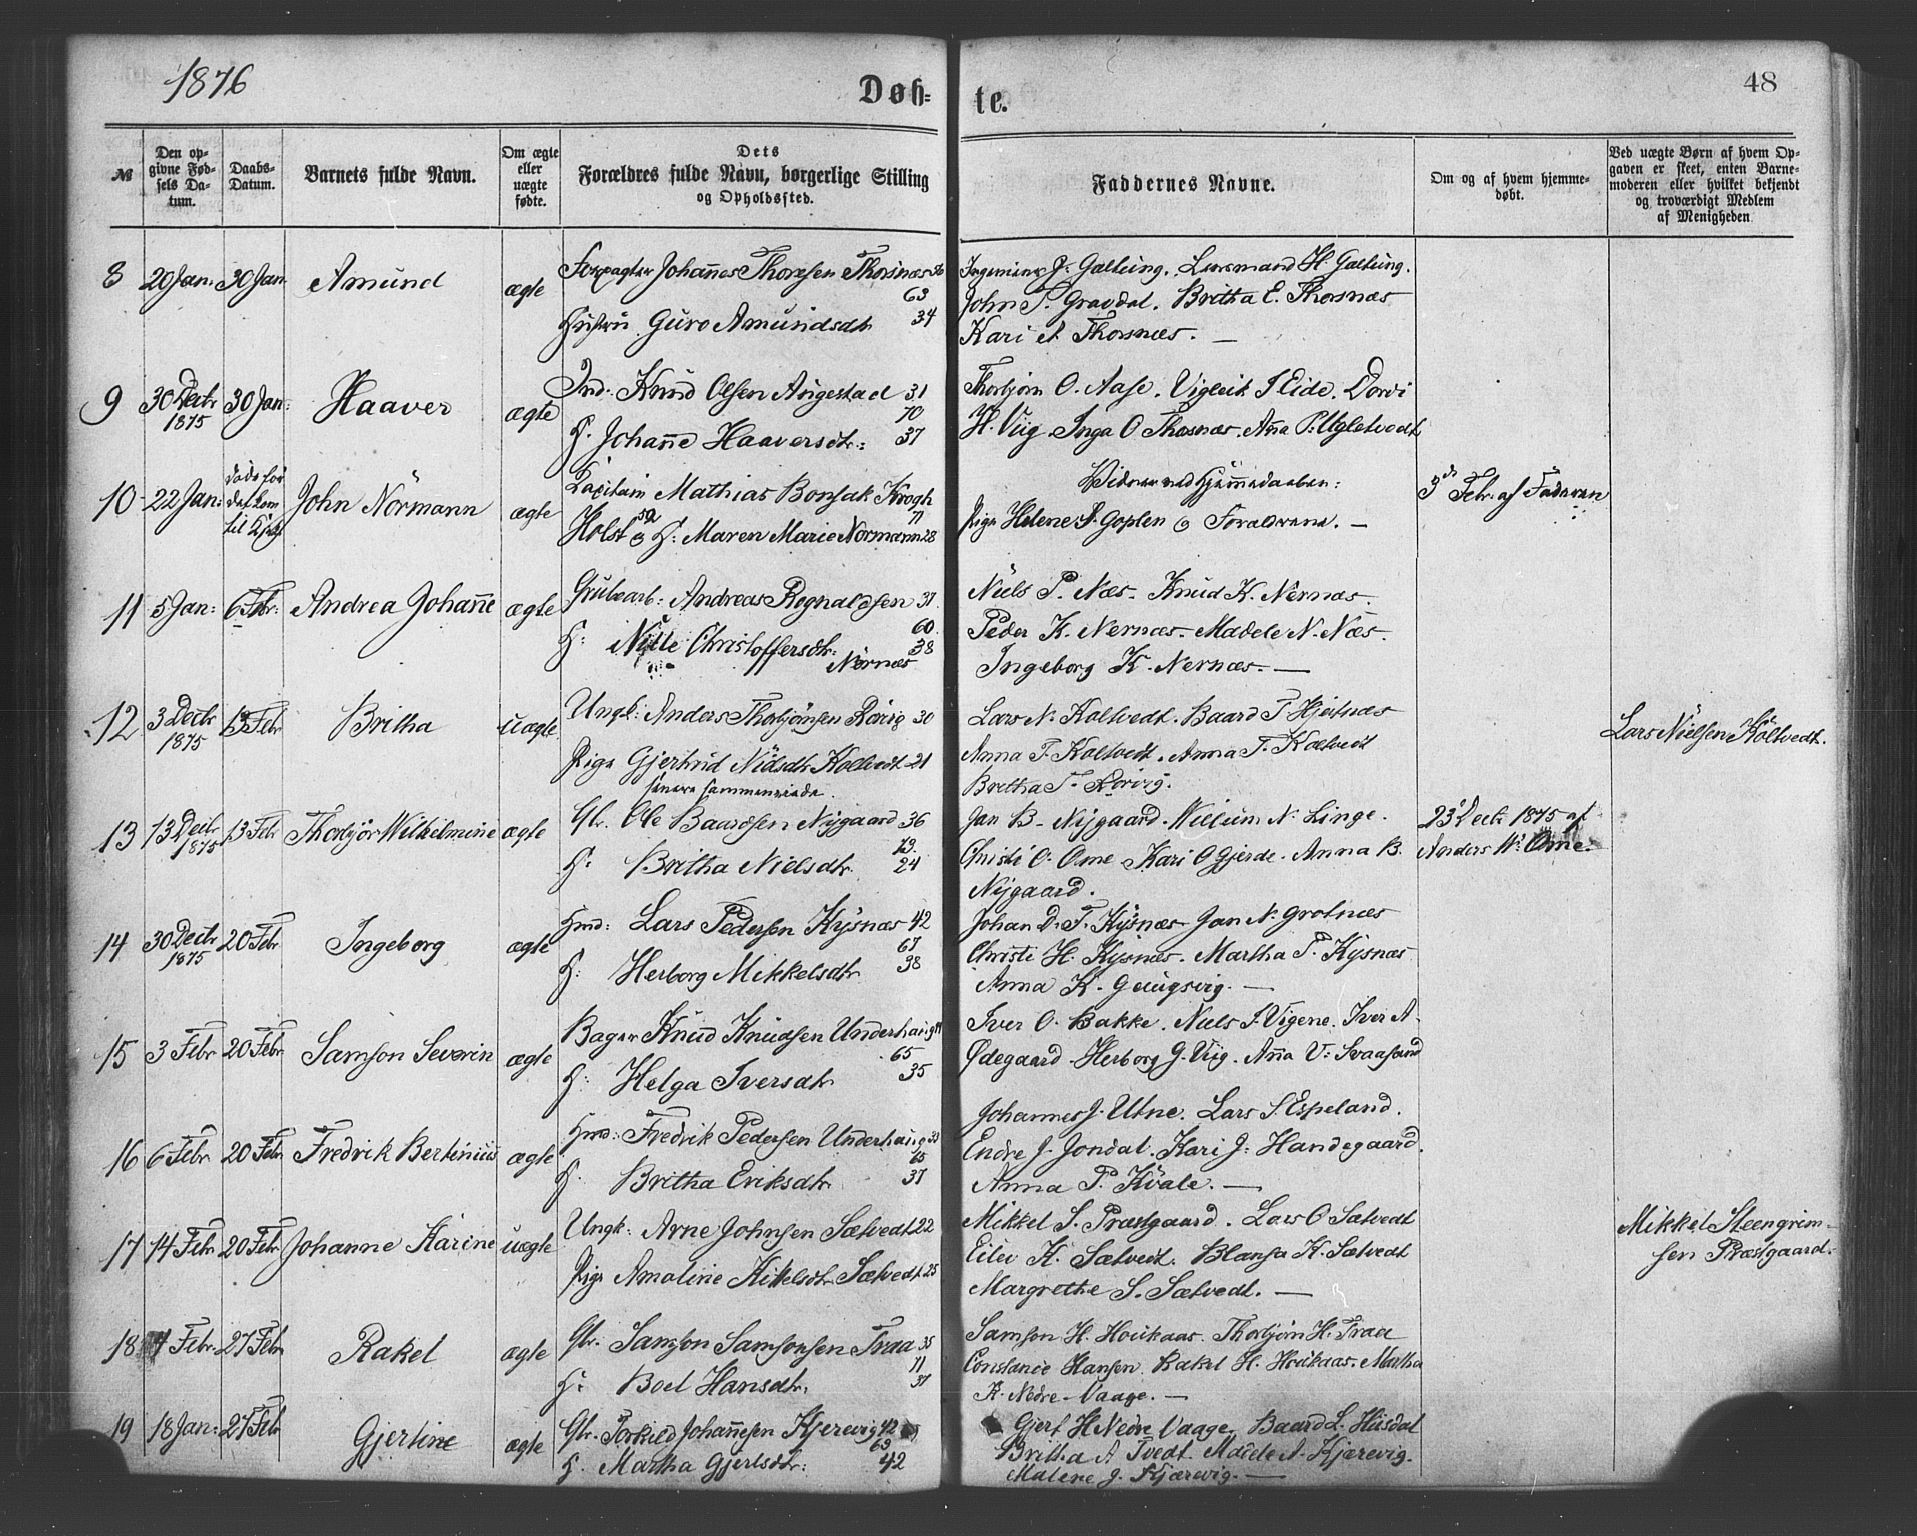 1876
Døb=
te.
48
№
Den op-
givne Fød-
sels Da-
tum.
Daabs-
Datum.
Barnets fulde Navn.
Om ægte
eller
uægte
fødte.
Dets
Forældres fulde Navn, borgerlige Stilling
og Opholdssted.
Faddernes Navne.
Om og af hvem hjemme-
døbt.
Ved uægte Børn af hvem Op-
gaven er skeet, enten Barne-
moderen eller hvilket bekjendt
og troværdigt Medlem
af Menigheden
8 20 Jan: 30 Jan Amund ægte
Forpagter Johannes Thorsen Thorsnæs
63
Hustru Guro Amundsdtr 34
Ingeniør J. Galtung. Lensmand H. Galtung.
John T. Gravdal. Britha E. Thorsnæs
Kari A Thorsnæs. —
9 30 Decbr 1875 30 Jan: Haaver ægte
Ind. Knud Olsen Augestad 31
70
H. Johanne Haaversdtr: 37
Thorbjørn O. Aase. Vigleik T Eide. Dordi
H. Viig. Inga O Thorsnæs. Anna P. Ugletvedt
10 22 Jan: døde før det kom til Kirke John Normann ægte
Kapitain Mathias Bonsak Krogh
71
Holst og H: Maren Marie Normann 28
Vidner ved Hjemmedaaben:
Pige Helene S. Goplen og Forældrene. —
3d Febr. af Faderen
11 5 Jan: 6 Febr: Andrea Johanne ægte
Grubearb: Andreas Regnaldsen 37
60
H: Nille Christoffersdtr: 38
Nernæs
Niels P. Næs. Knud K. Nernæs.
Peder K. Nernæs. Madele N. Næs.
Ingeborg K. Nernæs. —
12 3 Decbr 1875 13 Febr Britha uægte
Ungk: Anders Thorbjønsen Rørvig 30
Pige Gjertrud Nilsdtr Koltvedt 21
senere sammenviede.
Lars N. Koltvedt. Baard T Hjertnæs
Anna T. Koltvedt. Anna T. Koltvedt
Britha T. Rørvig.
Lars Nielsen Koltvedt.
13 13 Decbr 1875 13 Febr Thorbjør Wilhelmine ægte
Gbr. Ole Baardsen Nygaard 36
73.
H: Britha Nielsdtr 24
Jan B. Nygaard. Willum N. Linge.
Christi O. Ome. Kari O Gjerde. Anna B.
Nygaard.
23 Decbr 1875 af
Anders W: Ome.
14 30 Decbr 1875 20 Febr Ingeborg ægte
Hmd: Lars Pedersen Kysnæs 42
67
H: Herborg Mikkelsdtr 38
Johan D. T. Kysnæs Jan N. Grotnæs
Christi H. Kysnæs. Martha P. Kysnæs
Anna K. Gangsvig. —
15 3 Febr 20 Febr Samson Severin ægte
Bager Knud Knudsen Underhaug
65
H: Helga Iversdtr 35
Iver O. Bakke. Niels T. Vigene. Iver A.
Ødegaard. Herborg G. Viig. Anna V: Svaasand
16 6 Febr 20 Febr Fredrik Bertinius ægte
Hmd: Fredrik Pedersen Underhaug 33
H. Britha Eriksdtr 37
Johannes J. Utne. Lars S. Espeland.
Endre J. Jondal. Kari J: Handegaard.
Anna P. Kvale. —
17 14 Febr 20 Febr Johanne Karine uægte
Ungk: Arne Johnsen Sætvedt 22
Pige Amaline Kittelsdtr Sætvedt 25
Mikkel S. Præstgaard. Lars O Sætvedt
Eilev K. Sætvedt. Blansa K. Sætvedt
Margrethe S. Sætvedt. —
Mikkel Steengrim-
sen Præstgaard.
18 4 Febr 27 Febr Rakel ægte
Gbr. Samson Samsonsen Traa 35
71
H: Boel Hansdtr. 37
Samson H. Houkaas. Thorbjørn H. Traa
Constance Hansen. Rakel H. Houkaas. Martha
K. Nedre-Vaage. —
19 18 Jan: 27 Febr Gjertine ægte
Gbr. Torkild Johannesen Kjerevig 42
63
H. Martha Gjertsdtr: 42
Gjert H Nedre Vaage. Baard L. Huusdal
Britha A Tvedt. Madele A. Kjærevig.
Malene J. Kjærevig. —